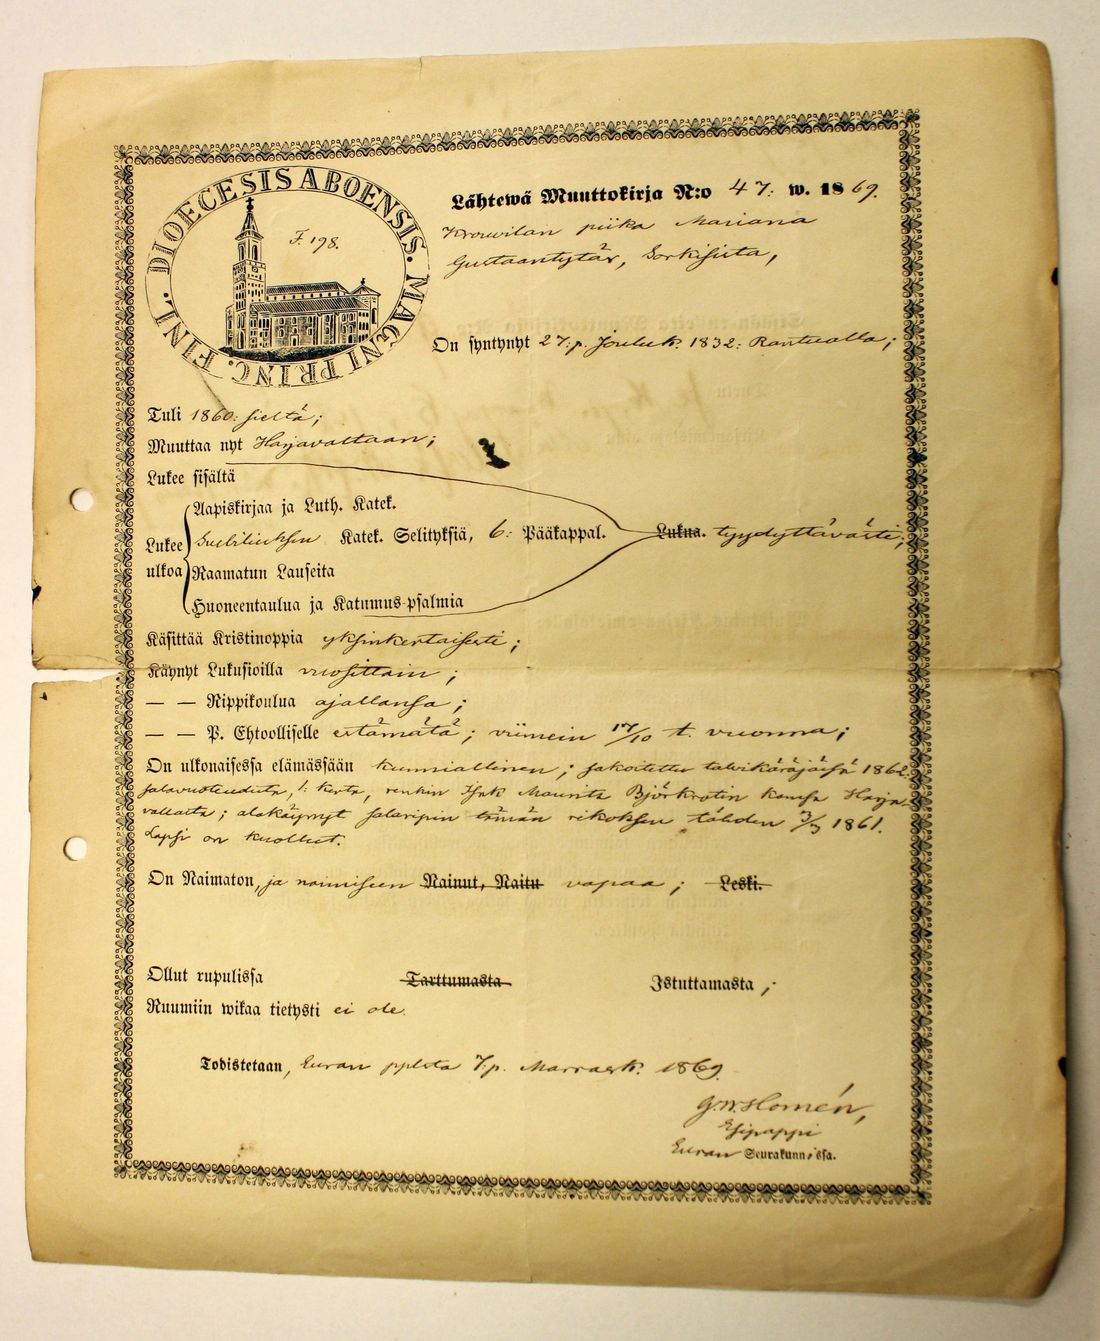 DIOECESIS ABOENSIS. MAGNI PRINC. FINL.
F. 198.
Lähtewä Muuttokirja N:o 47. w. 1869.
piika Mariana
Gustaantytär, Sorkisista,
On syntynyt 27.p. Jouluk. 1832: Rantualla;
Tuli 1860: sieltä;
Muuttaa nyt Harjavaltaan;
Lukee sisältä
Aapiskirjaa ja Luth. Katek.
Lukee ulkoa Katek. Selityksiä, 6: Pääkappal. Lukua. tyydyttäväisti;
Raamatun Lauseita
Huoneentaulua ja Katumus-psalmia
Käsittää Kristinoppia yksinkertaisesti;
Käynyt Lukusioilla vuosittain;
— — Rippikoulua ajallansa;
— — P. Ehtoolliselle estämätä; viimein 17/10 t. vuonna;
On ulkonaisessa elämässään kunniallinen; sakoitettu talvikäräjässä 1862
salavuoteudesta, 1: kerta, renkin Isak Maurits Björkrotin kansa Harja-
vallasta; alakäynyt salaripin tämän rikoksen tähden 3/3 1861.
Lapsi on kuollut.
On Naimaton, ja naimiseen Nainut, Naitu vapaa; Leski.
Ollut rupulissa Tarttumasta Istuttamasta;
Ruumiin wikaa tietysti ei ole.
Todistetaan, Euran pplsta 7.p. Marrask. 1869.
G.W. Homén,
Esipappi
Euran Seurakunnassa.